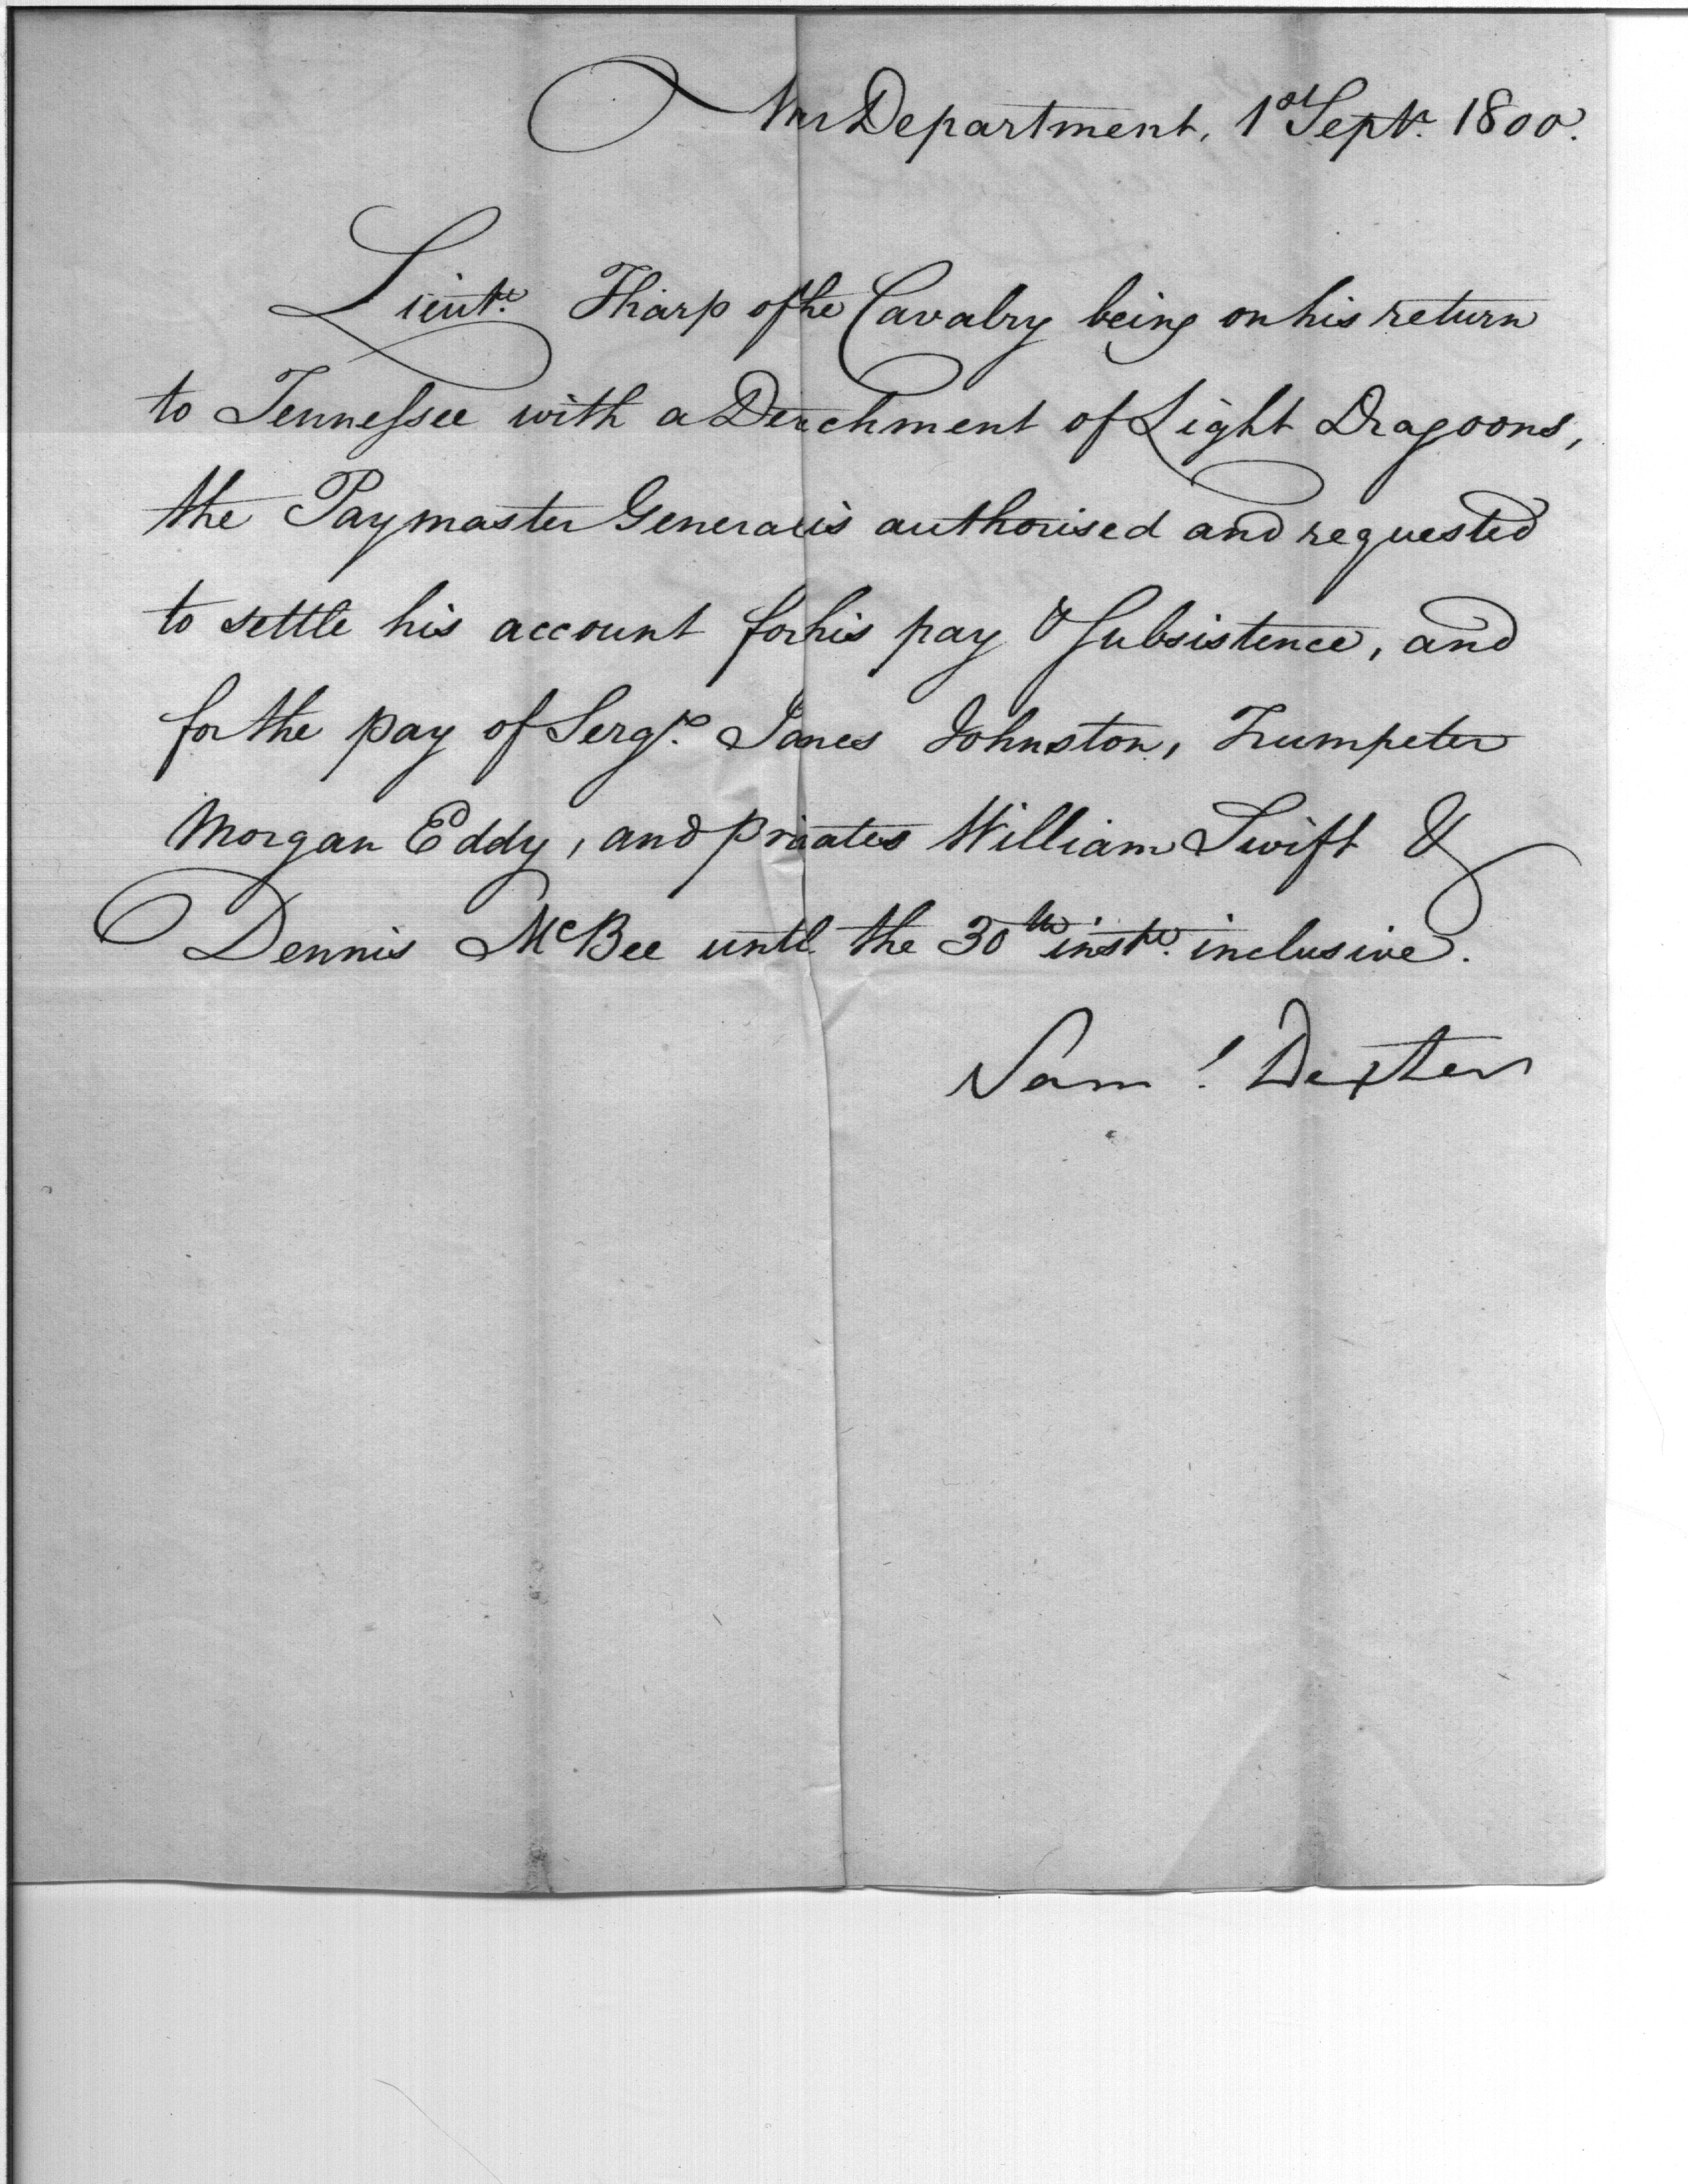 War Department, 1st Septr. 1800.
Lieut. Tharp of the Cavalry being on his return
to Tennessee with a Detachment of Light Dragoons,
the Paymaster General is authorised and requested
to settle his account for his pay & Subsistence, and
for the pay of Sergt. James Johnston, Trumpeter
Morgan Eddy, and privates William Swift &
Dennis McBee until the 30th inst. inclusive.
Saml. Dexter